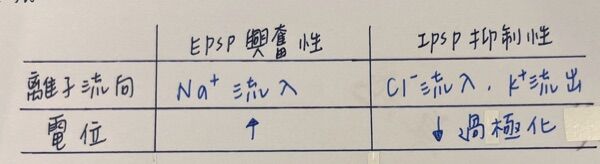 EPSP 興奮性 IPSP 抑制性
離子流向 Na⁺ 流入 Cl⁻流入、K⁺流出
電位 ↑ ↓ 過極化